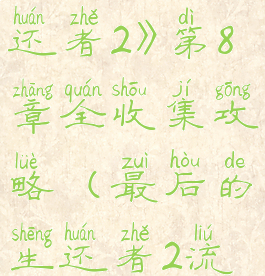 huán zhě dì
还者2》第8
zhāng quán shōu jí gōng
章全收集攻
lüè zuì hòu de
略（最后的
shēng huán zhě liú
生还者2流